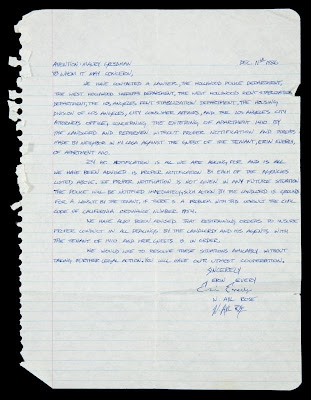 ATTENTION: MAURY GRESSMAN DEC. 11th 1986
TO WHOM IT MAY CONCERN,
WE HAVE CONTACTED A LAWYER, THE HOLLYWOOD POLICE DEPARTMENT,
THE WEST HOLLYWOOD SHERIFFS DEPARTMENT, THE WEST HOLLYWOOD RENT STABILIZATION
DEPARTMENT, THE LOS ANGELES RENT STABILIZATION DEPARTMENT, THE HOUSING
DIVISION OF LOS ANGELES, CITY CONSUMER AFFAIRS, AND THE LOS ANGELES CITY
ATTORNEYS OFFICE, CONCERNING THE ENTERING OF APARTMENT
THE LANDLORD AND REPAIRMEN WITHOUT PROPER NOTIFICATION AND THREATS
MADE BY NEIGHBOR AGAINST THE GUEST OF THE TENANT, ERIN EVERLY,
OF APARTMENT
24 HR. NOTIFICATION IS ALL WE ARE ASKING FOR AND IS ALL
WE HAVE BEEN ADVISED IS PROPER NOTIFICATION BY EACH OF THE AGENCIES
LISTED ABOVE. IF PROPER NOTIFICATION IS NOT GIVEN IN ANY FUTURE SITUATION
THE POLICE WILL BE NOTIFIED IMMEDIATELY. SUCH ACTION BY THE LANDLORD IS GROUNDS
FOR A LAWSUIT BY THE TENANT, IF THERE IS A PROBLEM WITH THIS CONSULT THE CIVIL
CODE OF CALIFORNIA ORDINANCE NUMBER 1954.
WE HAVE ALSO BEEN ADVISED THAT RESTRAINING ORDERS TO INSURE
PROPER CONDUCT IN ALL DEALINGS BY THE LANDLORD AND ITS AGENTS WITH
THE TENANT OF AND HER GUESTS IS IN ORDER.
WE WOULD LIKE TO RESOLVE THESE SITUATIONS AMICABLY WITHOUT
TAKING FURTHER LEGAL ACTION. YOU WILL HAVE OUR UTMOST COOPERATION.
SINCERELY
ERIN EVERLY
Erin Everly
W. AXL ROSE
W. Axl Rose